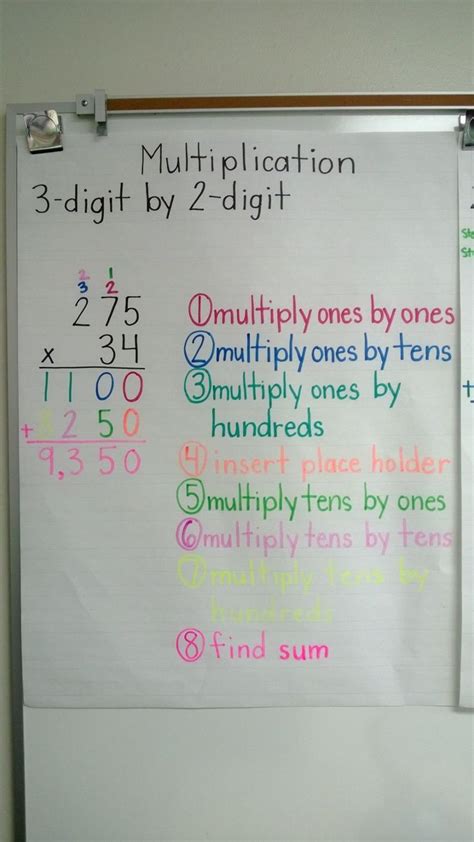 Multiplication
3-digit by 2-digit
2 1
3 2
275
x 34
1100
+ 8250
9,350
① multiply ones by ones
② multiply ones by tens
③ multiply ones by
hundreds
④ insert place holder
⑤ multiply tens by ones
⑥ multiply tens by tens
⑦ multiply tens by
hundreds
⑧ find sum